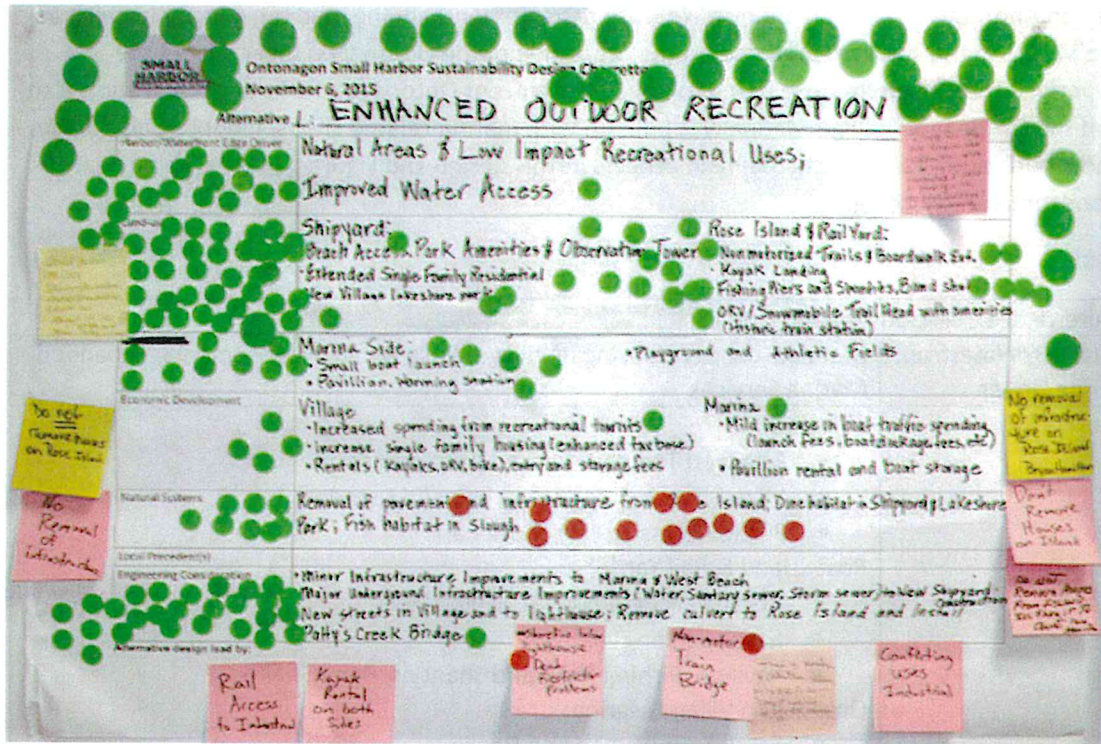 SMALL
HARBOR
Ontonagon Small Harbor Sustainability Design Charrette
November 6, 2015
Alternative 1: ENHANCED OUTDOOR RECREATION
Harbor/Waterfront Edge Driver
Natural Areas & Low Impact Recreational Uses;
Improved Water Access
Shipyard:
Beach Access, Park Amenities & Observation Tower
• Extended Single Family Residential
New Village lakeshore park
Rose Island & Rail Yard:
• Nonmotorized Trails & Boardwalk Ext.
• Kayak Landing
Fishing Piers and Band
ORV/Snowmobile Trail Head with amenities
(Historic train station)
Marina Side:
• Small boat launch
• Pavillion, Warming station
• Playground and Athletic Fields
Economic Development
Village
• Increased spending from recreational tourists
• increase single family housing (enhanced tax base)
• Rentals (kayaks, ORV, bike), entry and storage fees
Marina
• Mild increase in boat traffic spending
(launch fees, boat dockage fees, etc)
• Pavillion rental and boat storage
Natural Systems
Removal of pavement and infrastructure from Island; Dune habitat in Shipyard & Lakeshore
Park; Fish habitat in Slough
Local Precedent(s)
Engineering Consideration
• Minor Infrastructure Improvements to Marina & West Beach
Major Underground Infrastructure Improvements (Water, Sanitary sewer, Storm sewer) to New Shipyard
Construction
New streets in Village and to lighthouse; Remove culvert to Rose Island and install
Patty's Creek Bridge
Alternative design lead by:
Do not
remove
on Rose Island
No
Removal
of
infrastructure
No removal
of infrastruc-
ture on
Rose Island
Don't
Remove
Houses
on Island
Do not
Remove
Rail
Access
to Industrial
Kayak
Rental
on both
Sides
Shoreline below
lighthouse
Deed
Restriction
Problems
Non-motor
Train
Bridge
Conflicting
Uses
Industrial